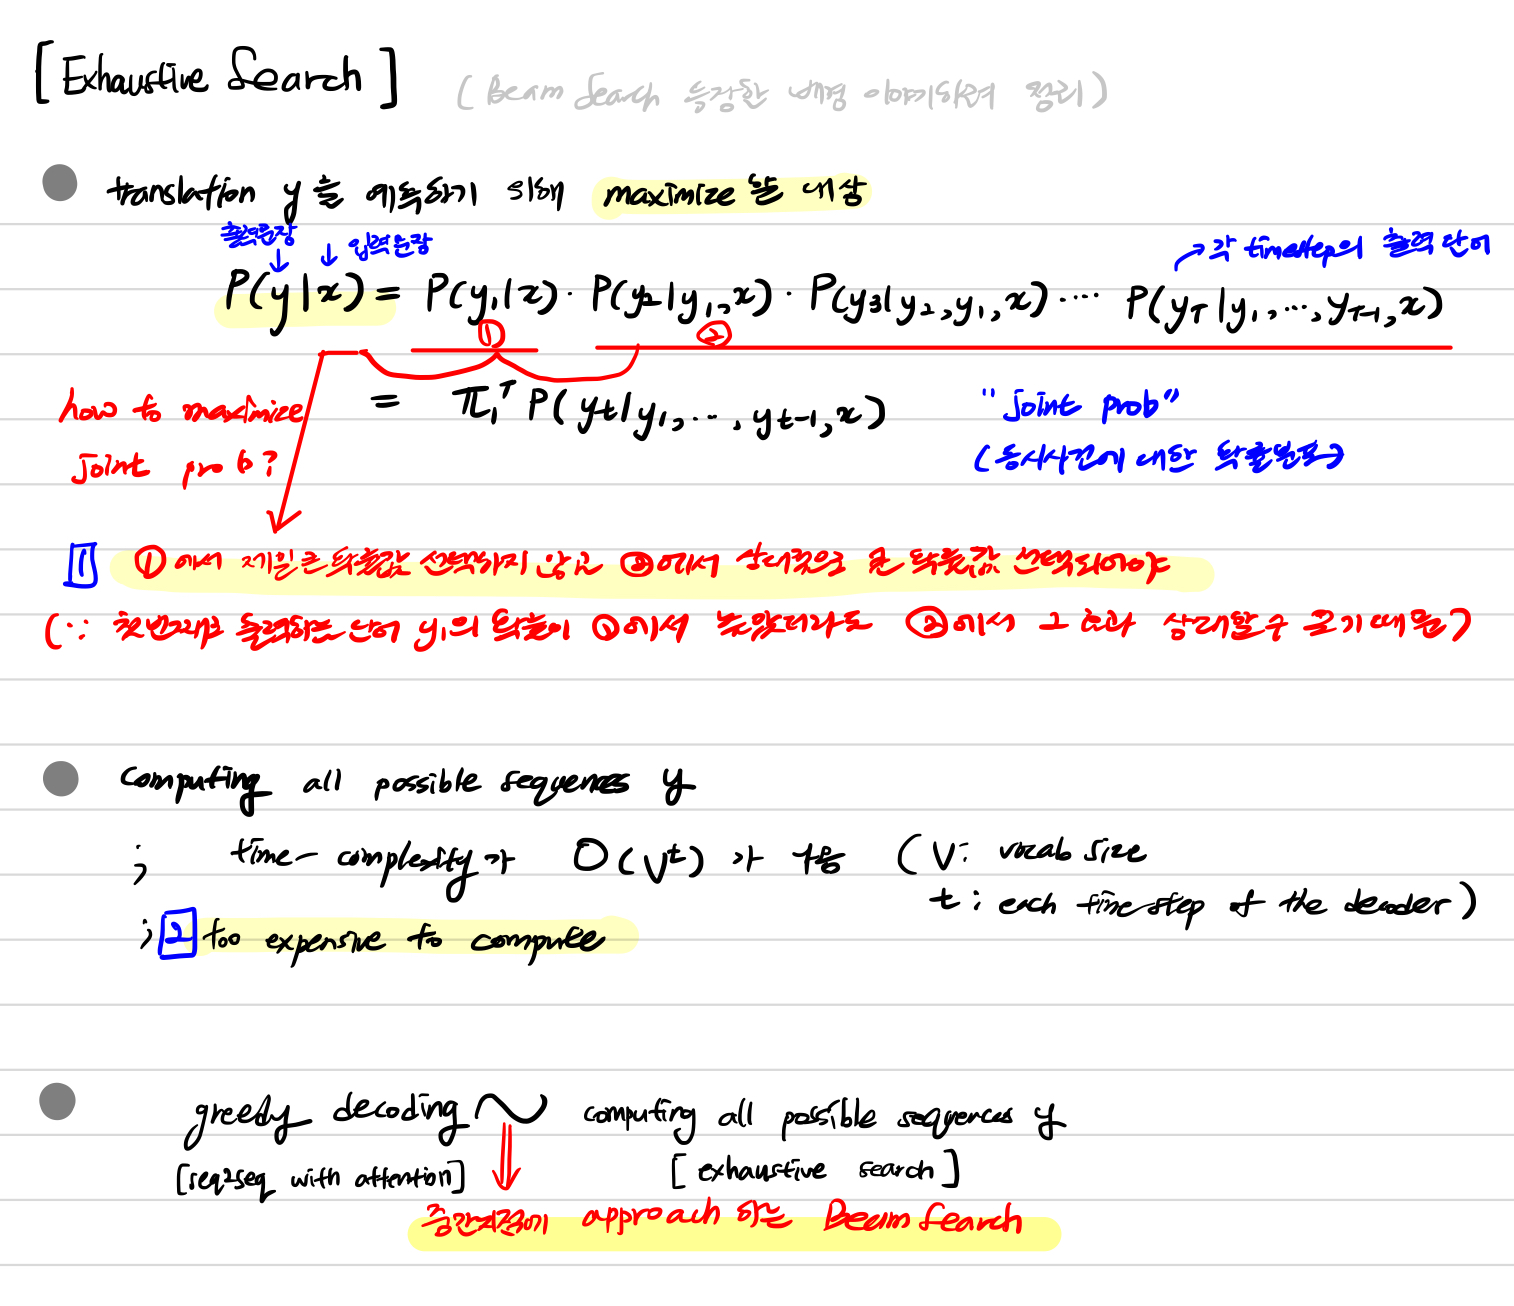 [Exhaustive Search] (Beam Search 등장한 배경 이야기하려 정리)
translation y를 예측하기 위해 maximize 할 대상
출력문장 입력문장 각 timestep의 출력 단어
P(y|x) = P(y₁|x) · P(y₂|y₁,x) · P(y₃|y₂,y₁,x) ···· P(y_T|y₁,...,y_T-1,x)
① ②
how to maximize
joint prob?
= π₁ᵀ P(yt|y₁,...,yt-1,x) "joint prob"
(동시사건에 대한 확률분포)
1 ①에서 제일 큰 확률값 선택하지 않고 ②에서 상대적으로 큰 확률값 선택되어야
(∵ 첫번째로 출력하는 단어 y₁의 확률이 ①에서 높았더라도 ②에서 그 효과 상대할 수 모기 때문)
computing all possible sequences y
; time-complexity가 O(Vᵗ)가 (V: vocab size
t: each timestep of the decoder)
; 2 too expensive to compute
greedy decoding ~ computing all possible sequences y
[seq2seq with attention] [exhaustive search]
⇓
중간지점에 approach 하는 Beam Search